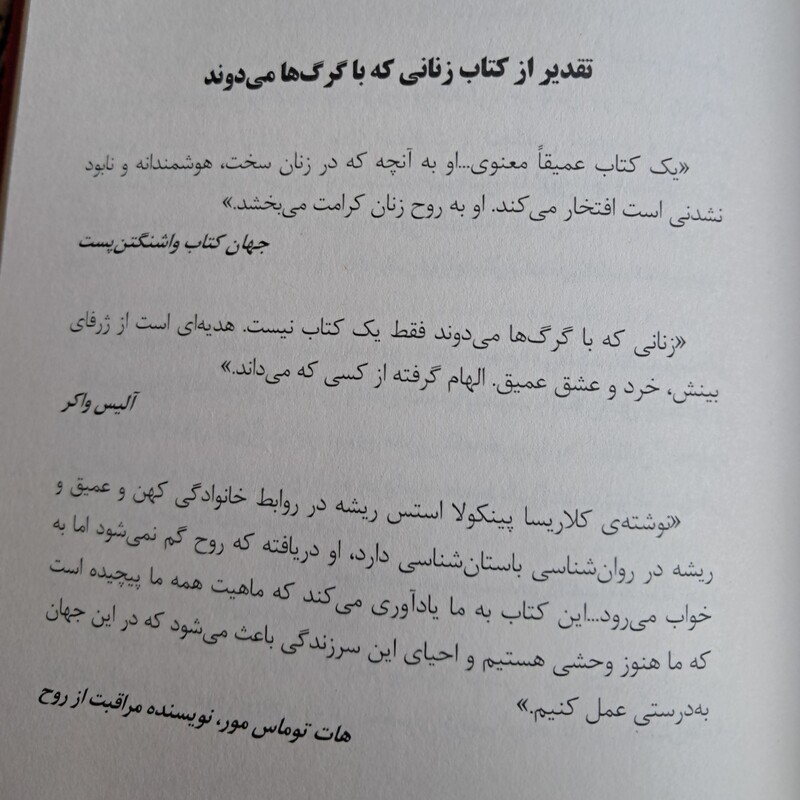 تقدیر از کتاب زنانی که با گرگ‌ها می‌دوند
«یک کتاب عمیقاً معنوی...او به آنچه که در زنان سخت، هوشمندانه و نابود
نشدنی است افتخار می‌کند. او به روح زنان کرامت می‌بخشد.»
جهان کتاب واشنگتن‌پست
«زنانی که با گرگ‌ها می‌دوند فقط یک کتاب نیست. هدیه‌ای است از ژرفای
بینش، خرد و عشق عمیق. الهام گرفته از کسی که می‌داند.»
آلیس واکر
«نوشته‌ی کلاریسا پینکولا استس ریشه در روابط خانوادگی کهن و عمیق و
ریشه در روان‌شناسی باستان‌شناسی دارد، او دریافته که روح گم نمی‌شود اما به
خواب می‌رود...این کتاب به ما یادآوری می‌کند که ماهیت همه ما پیچیده است
که ما هنوز وحشی هستیم و احیای این سرزندگی باعث می‌شود که در این جهان
به‌درستی عمل کنیم.»
هات توماس مور، نویسنده مراقبت از روح